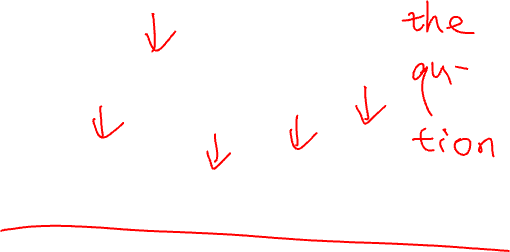 the
qu-
tion